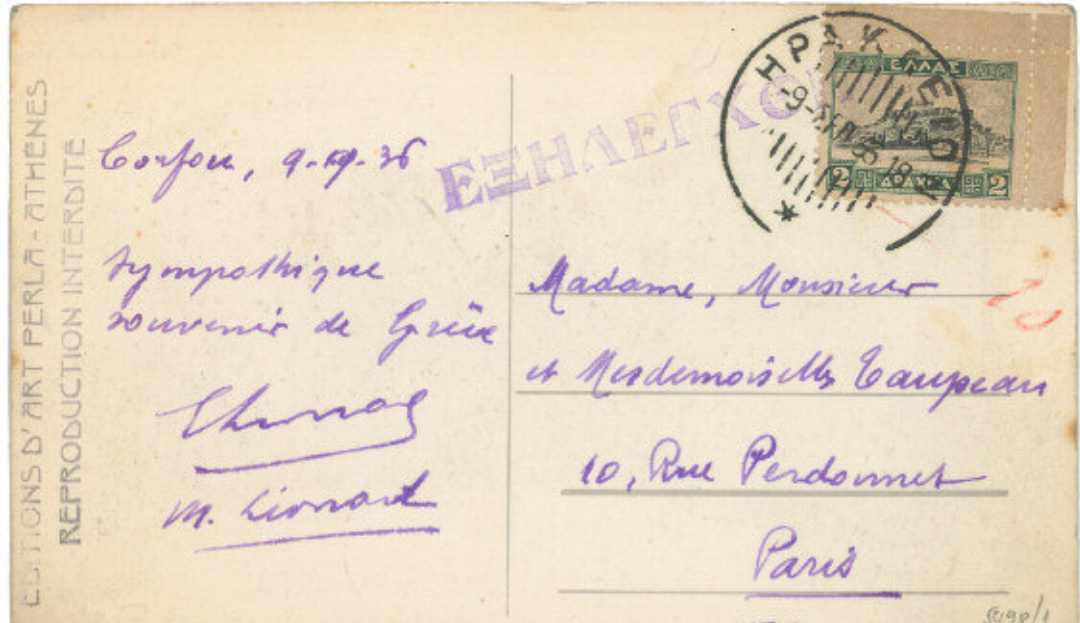 EDITIONS D'ART PERLA - ATHÈNES
REPRODUCTION INTERDITE
Corfou, 9.9.36
Sympathique
souvenir de Grèce
M. Lionart
ΕΞΗΛΕΓΧΘΗ
ΗΡΑΚΛΕΙΟΝ
-9-ΣΕΠ 36 18
ΕΛΛΑΣ
2 ΔΡΑΧΜΑΙ 2
Madame, Monsieur
et Mesdemoiselles Taupeau
10, Rue Perdonnet
Paris
5498/1